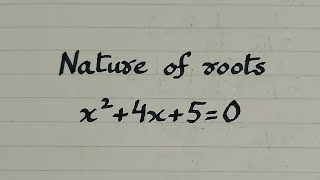 Nature of roots
x²+4x+5=0